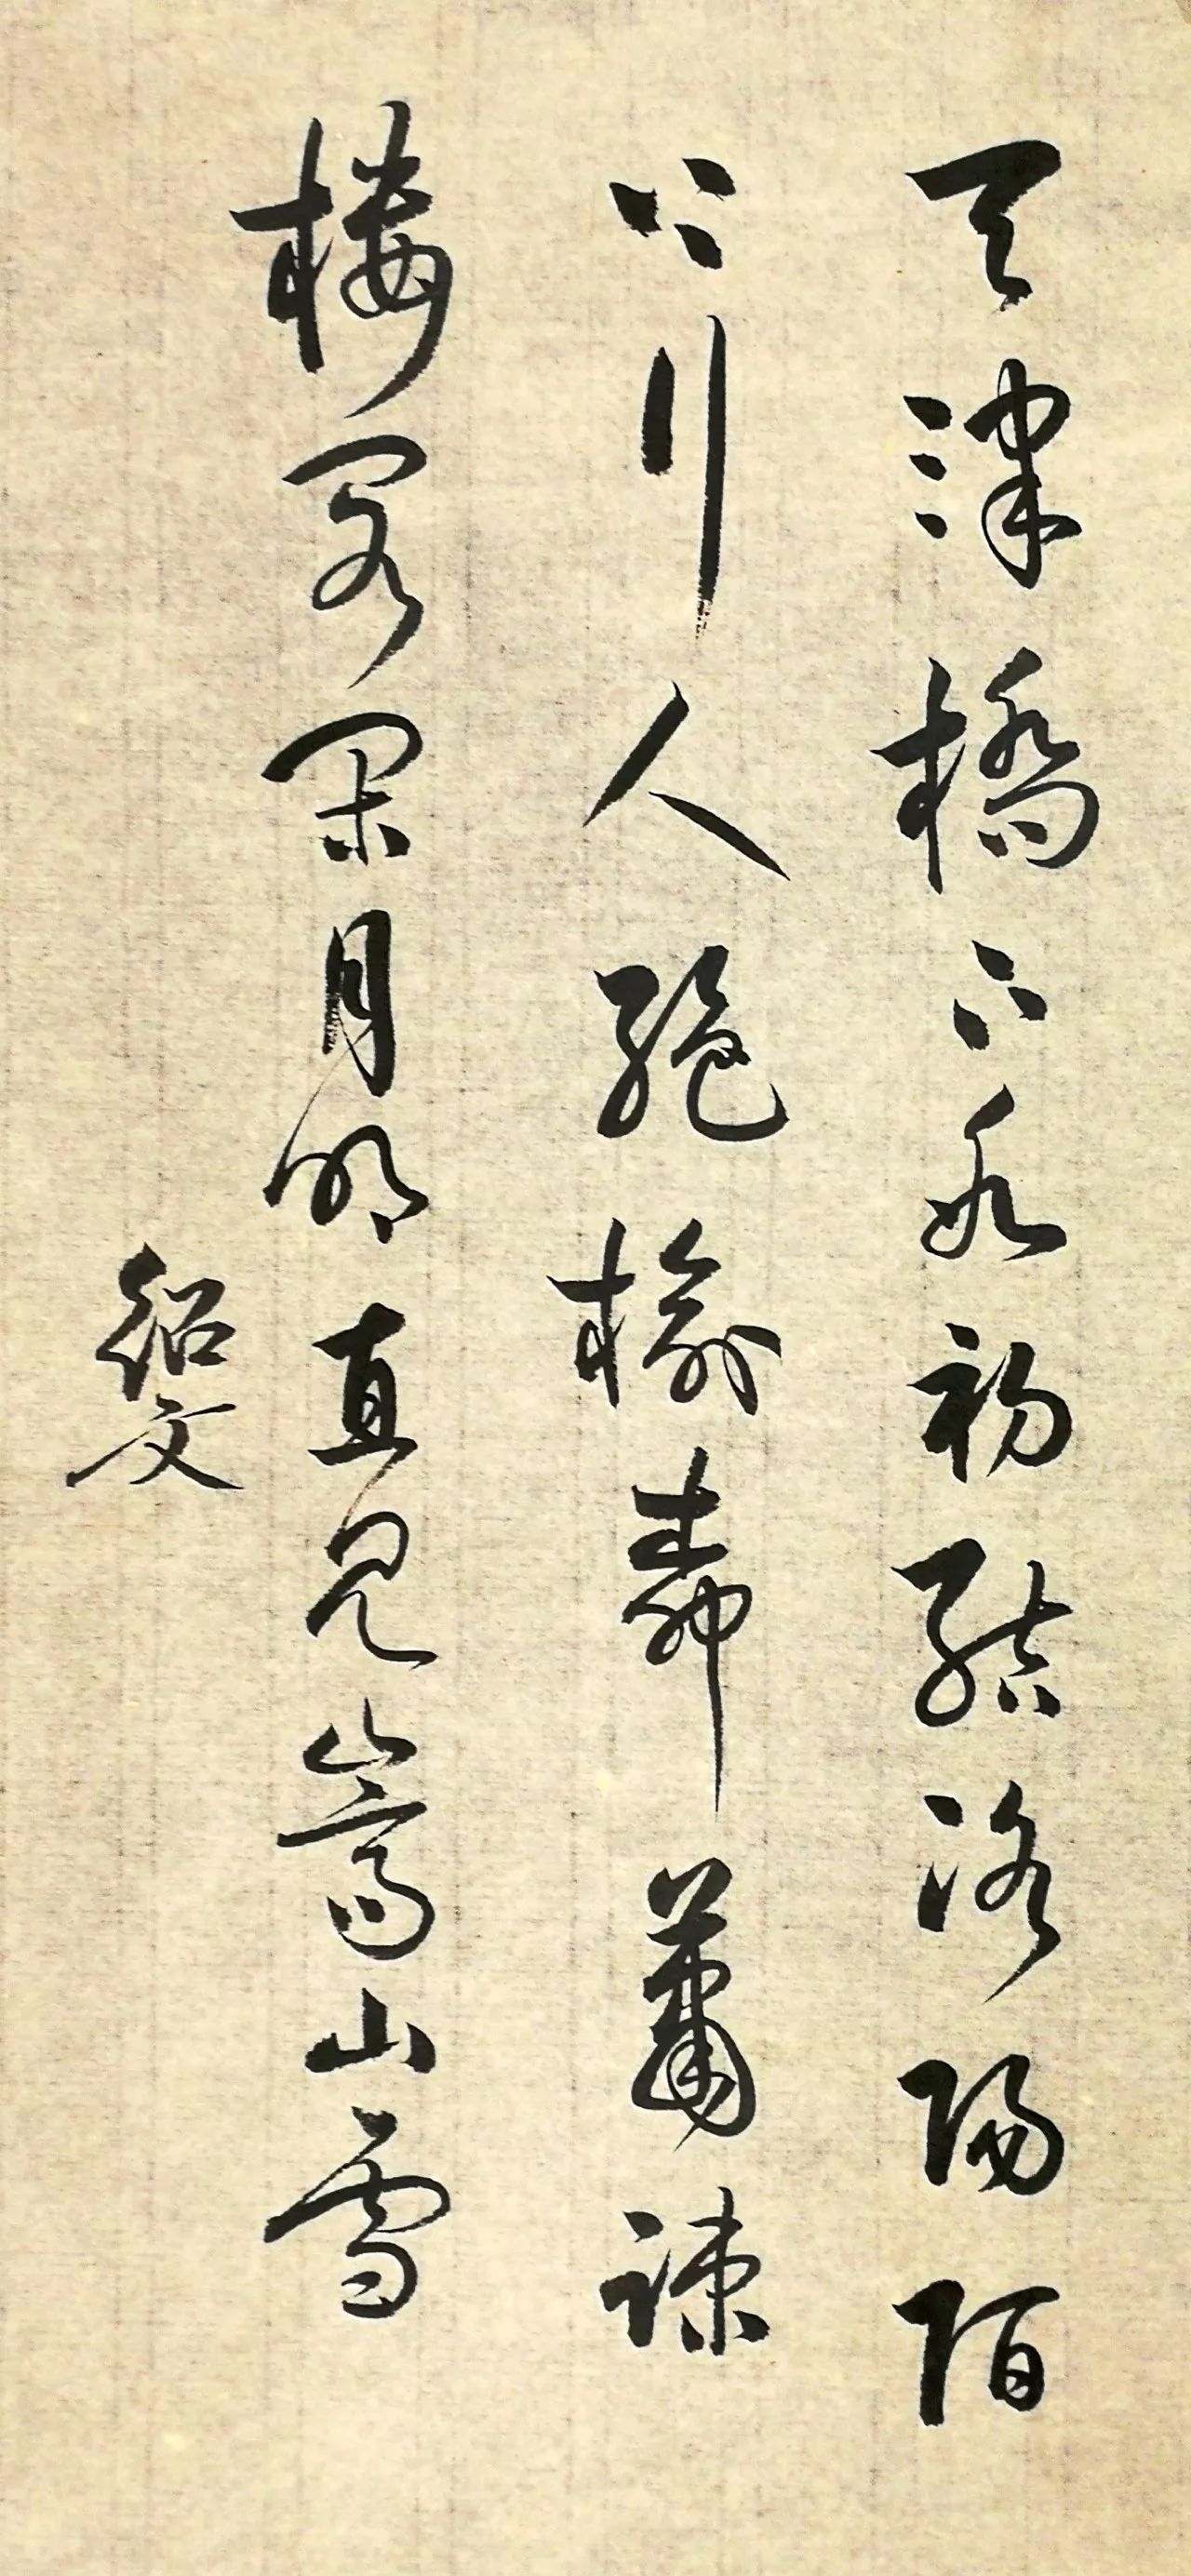 天津橋下冰初結洛陽陌
上行人絕榆柳蕭疎
樓閣閑月明直見嵩山雪
紹文